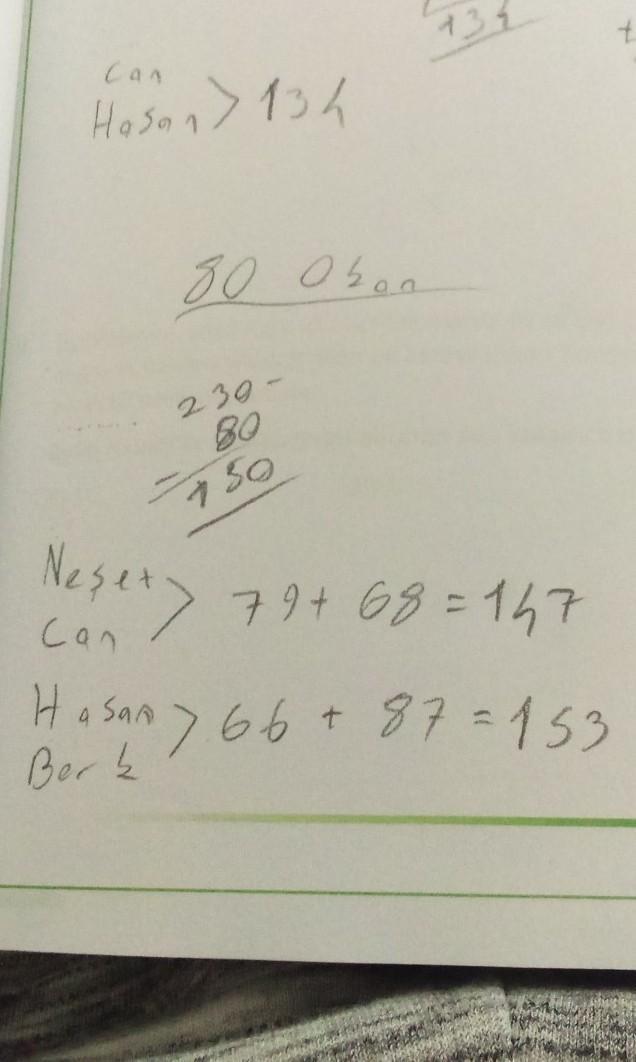 134
Can
Hasan > 134
80 Okan
230 -
80
= 150
Neşet
Can > 79 + 68 = 147
Hasan > 66 + 87 = 153
Berk